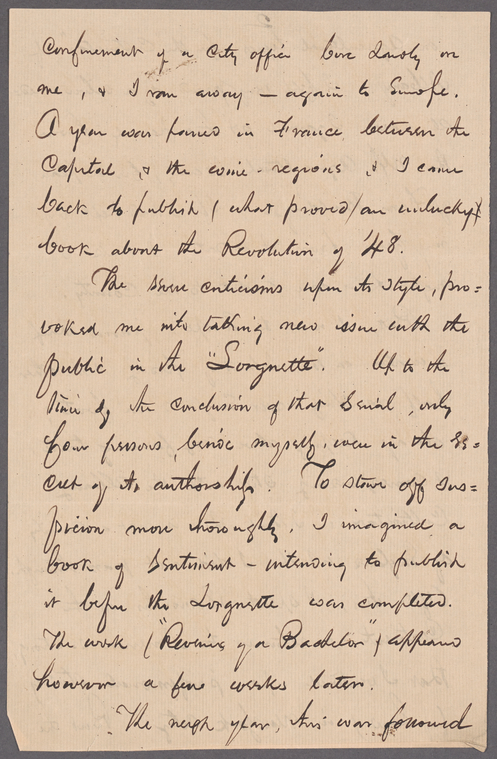 Confinement of a City office bore [
me, & I ran away — again to Europe.
A year was passed in France between the
Capital, & the wine-regions, & I came
back to publish (what proved) an unlucky
book about the Revolution of '48.
The severe criticisms upon its style, pro=
voked me into taking new issue with the
public in the "Lorgnette". Up to the
time of the conclusion of that Serial, only
four persons, beside myself, were in the se=
cret of its authorship. To stave off sus=
picion more thoroughly, I imagined a
book of sentiment - intending to publish
it before the Lorgnette was completed.
The work ("Reveries of a Bachelor") appeared
however a few weeks later.
The next year, this was followed